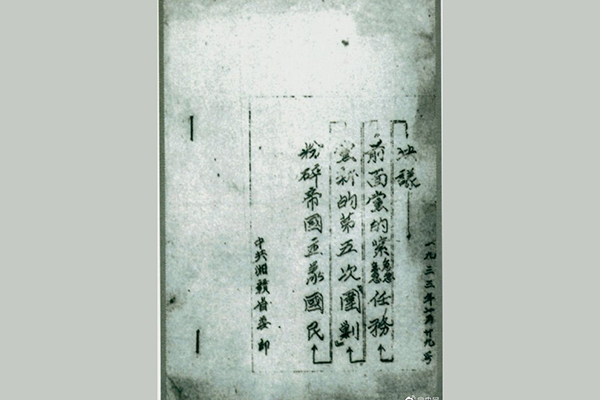 粉碎帝國主義國民
黨新的第五次“圍剿”
前面黨的緊急任務
决議
一九三三年 月廿九号
中共湘赣省委印